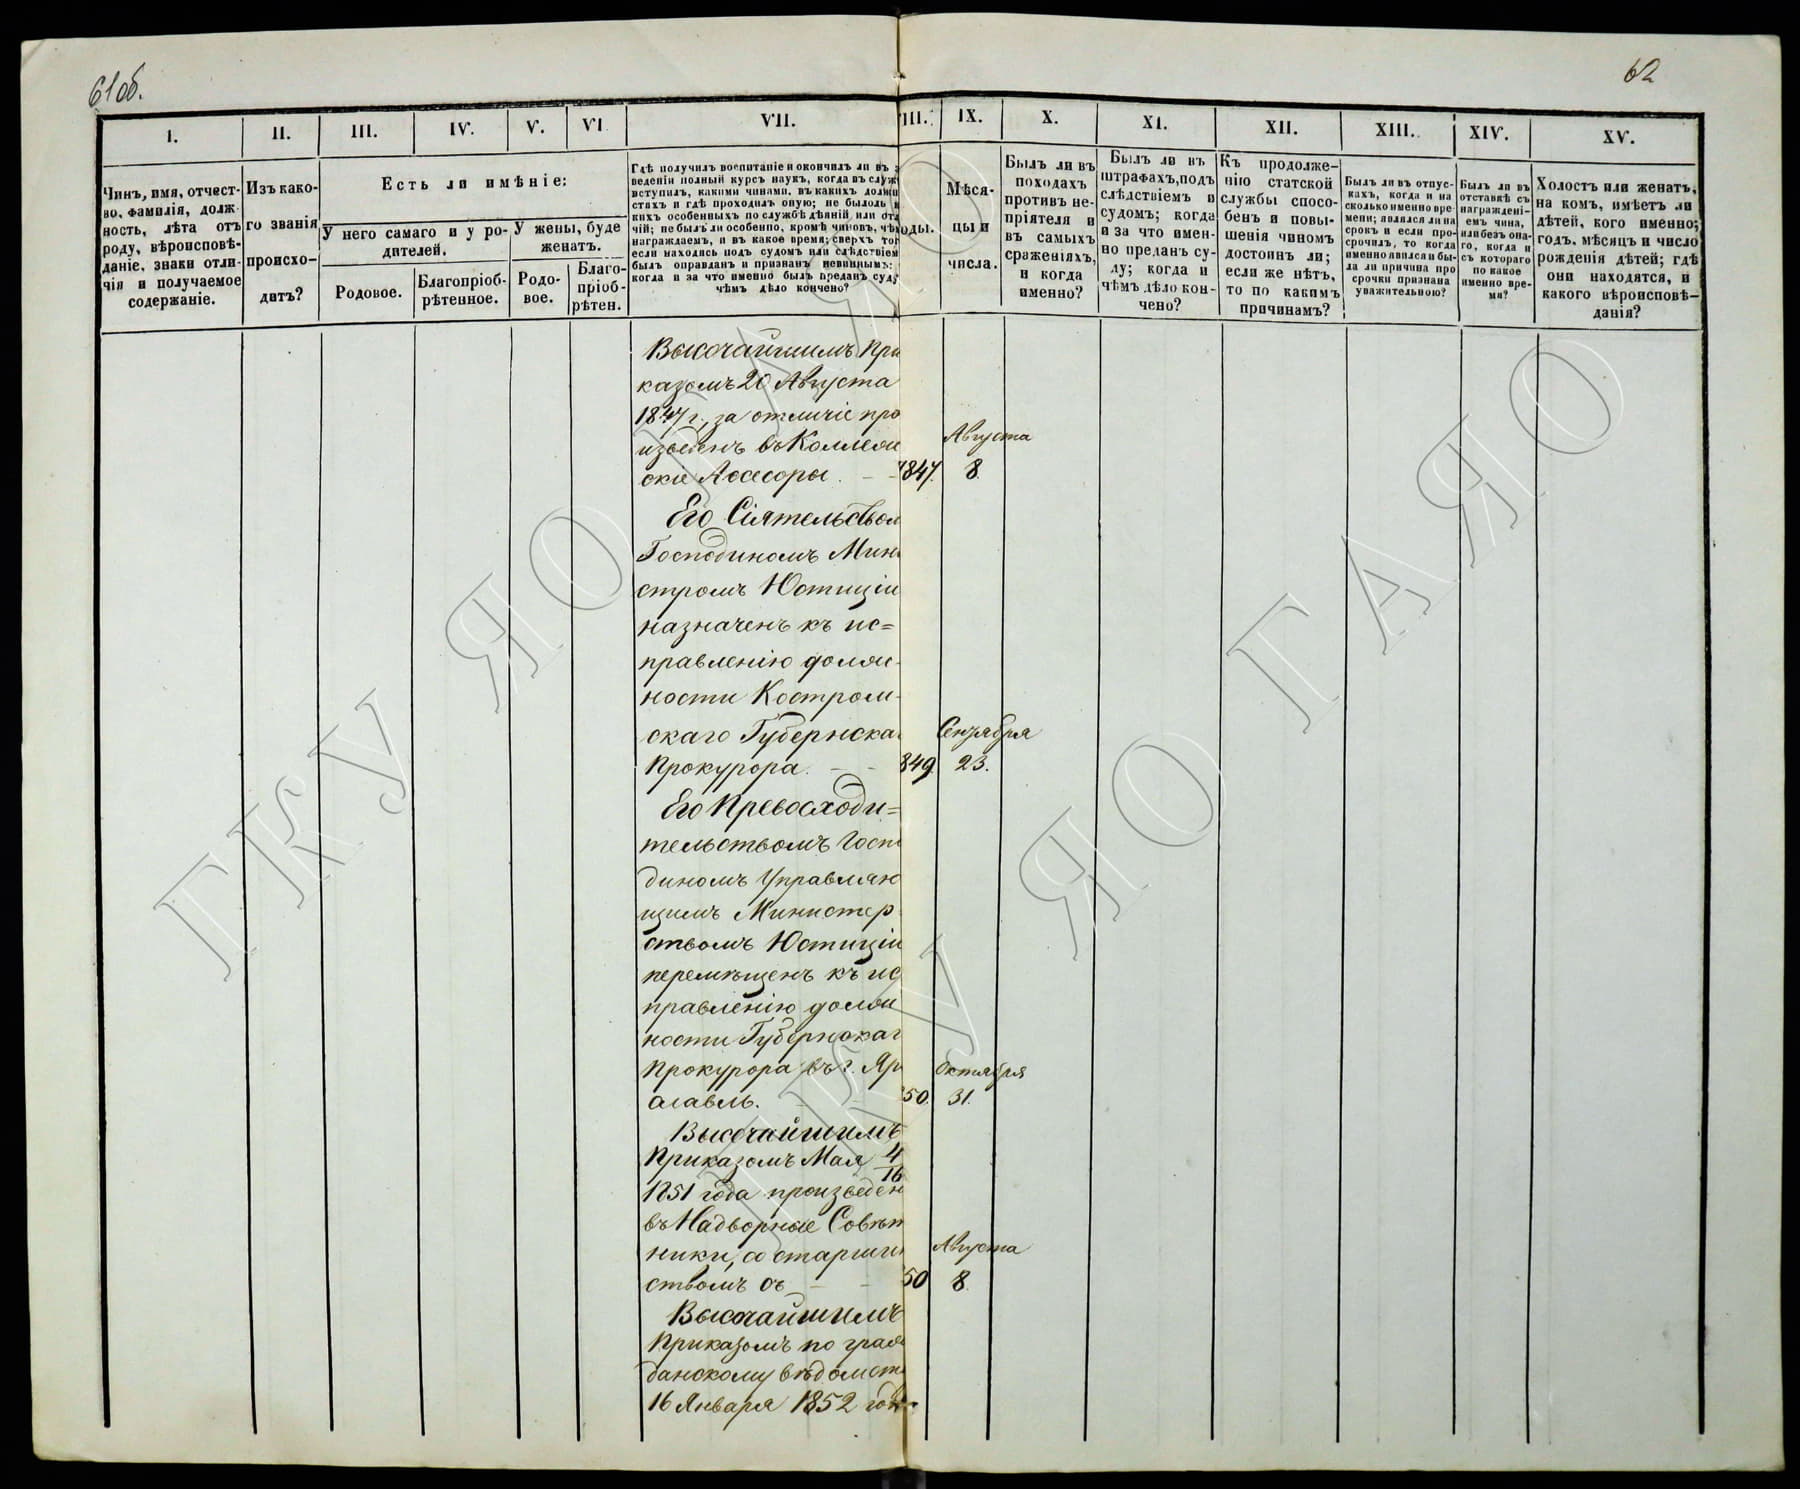 61об.
62
I.
II.
III.
IV.
V.
VI
VII.
III.
IX.
X.
XI.
XII.
XIII.
XIV.
XV.
Чинъ, имя, отчест-
во, фамилія, долж-
ность, лѣта отъ
роду, вѣроисповѣ-
даніе, знаки отли-
чія и получаемое
содержаніе.
Изъ како-
го званія
происхо-
дитъ?
Есть ли имѣніе:
У него самаго и у ро-
дителей.
У жены, буде
женатъ.
Родовое.
Благопріоб-
рѣтенное.
Родо-
вое.
Благо-
пріоб-
рѣтен.
Гдѣ получилъ воспитаніе и окончилъ ли въ з
веденіи полный курсъ наукъ, когда въ служ
вступилъ, какими чинами, въ какихъ должн
стяхъ и гдѣ проходилъ оную; не былоль к
кихъ особенныхъ по службѣ дѣяній, или отл
чій; не былъ ли особенно, кромѣ чиновъ, чѣм
награждаемъ, и въ какое время; сверхъ тог
если находясь подъ судомъ или слѣдствіем
былъ оправданъ и признанъ невиннымъ:
когда и за что именно былъ преданъ суду
чѣмъ дѣло кончено?
оды.
Мѣся-
цы и
числа.
Былъ ли въ
походахъ
противъ не-
пріятеля и
въ самыхъ
сраженіяхъ,
и когда
именно?
Былъ ли въ
штрафахъ, подъ
слѣдствіемъ и
судомъ; когда
и за что имен-
но преданъ су-
ду; когда и
чѣмъ дѣло кон-
чено?
Къ продолже-
нію статской
службы спосо-
бенъ и повы-
шенія чиномъ
достоинъ ли;
если же нѣтъ,
то по какимъ
причинамъ?
Былъ ли въ отпус-
кахъ, когда и на
сколько именно вре-
мени; являлся ли на
срокъ и если про-
срочилъ, то когда
именно явился и бы-
ла ли причина про
срочки признана
уважительною?
Былъ ли въ
отставкѣ съ
награжденi-
емъ чина,
или безъ она-
го, когда и
съ котораго
по какое
именно вре-
мя?
Холостъ или женатъ,
на комъ, имѣетъ ли
дѣтей, кого именно;
годъ, мѣсяцъ и число
рожденія дѣтей; гдѣ
они находятся, и
какого вѣроисповѣ-
данія?
Высочайшимъ При
казомъ 20 Августа
1847 г., за отличіе про
изведенъ въ Коллеж
скіе Асесоры. — — 1847. Августа 8.
Его Сіятельством
Господиномъ Мини
стромъ Юстиціи
назначенъ къ ис=
правленію долж-
ности Костром-
скаго Губернскаг
Прокурора. — — 849. Сентября 23.
Его Превосходи=
тельствомъ Госпо
диномъ Управляю
щимъ Министер
ствомъ Юстиціи
перемѣщенъ къ ис
правленію долж
ности Губернскаг
Прокурора въ г. Яро
славль. — — 50. Октября 31.
Высочайшимъ
Приказомъ Мая 4/16
1851 года произведен
въ Надворные Совѣт
ники, со старшин
ствомъ съ — — 50 Августа 8.
Высочайшимъ
Приказомъ по граж
данскому вѣдомств
16 Января 1852 года
ГКУ ЯО ГАЯО
ГКУ ЯО ГАЯО